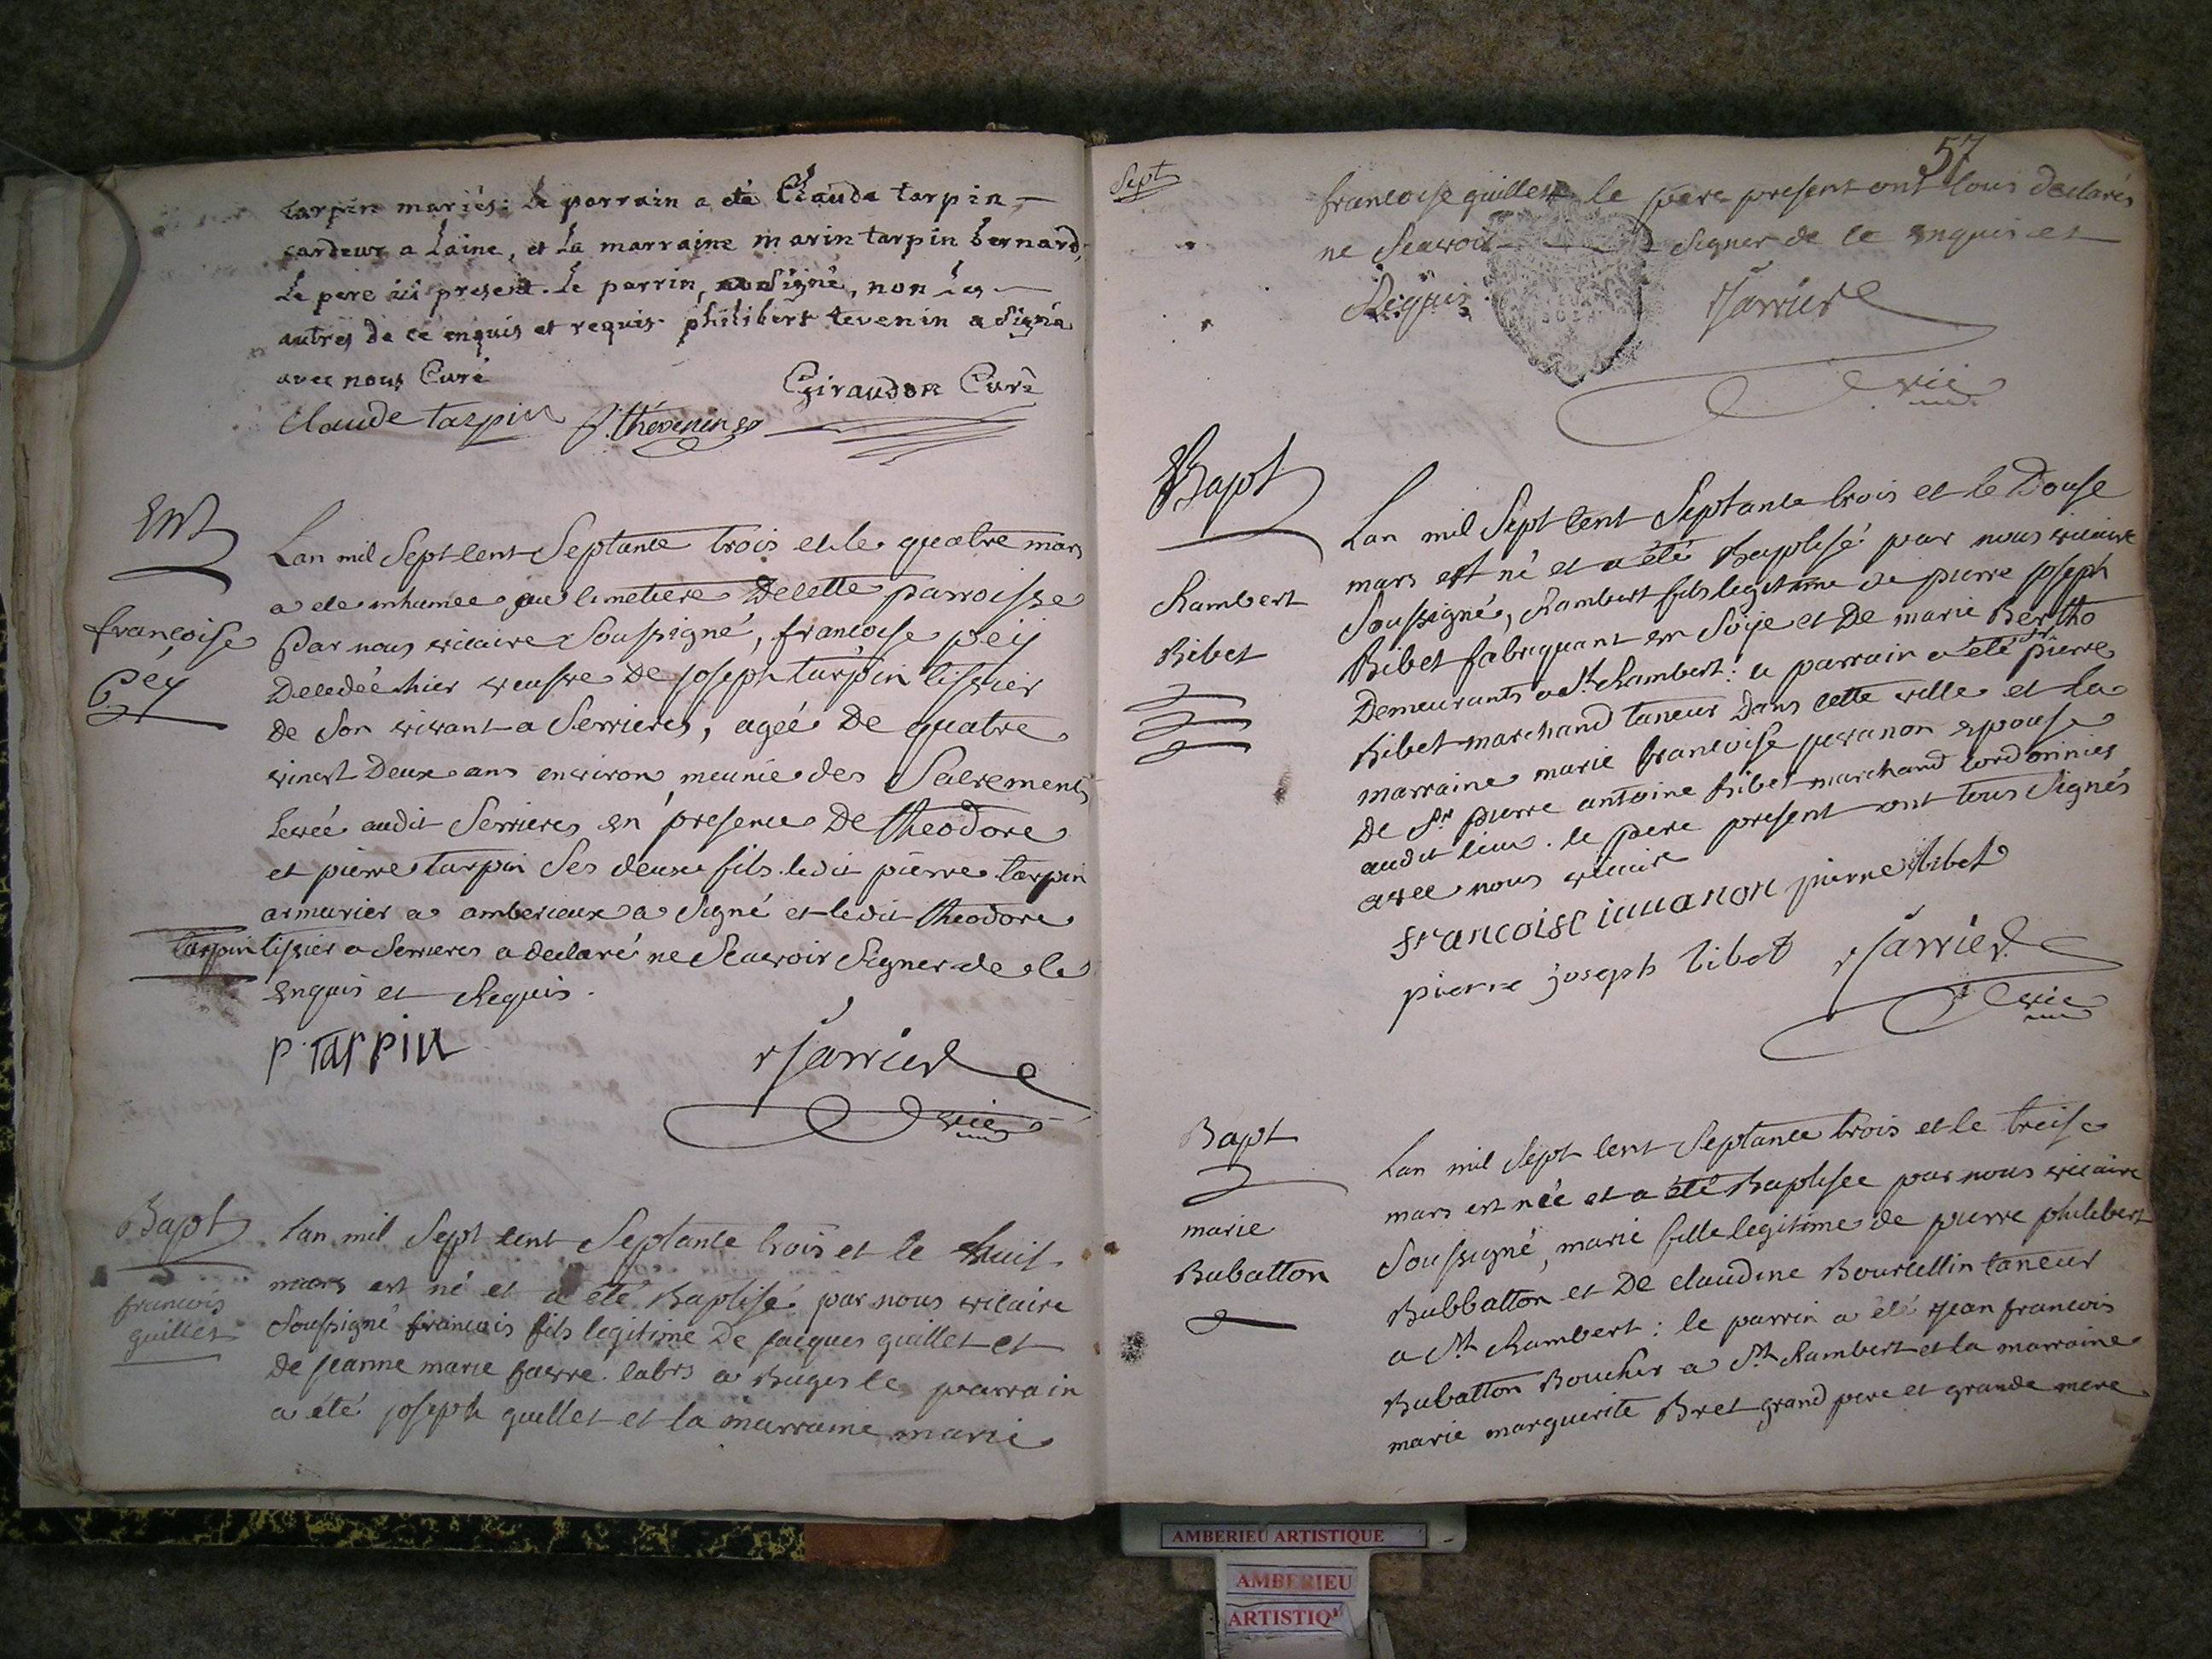 tarpin mariés: le parrain a été Claude tarpin
cardeur a laine, et la marraine marie tarpin bernard,
le pere ici present. le parrin, a signé, non les
autres de ce enquis et requis philibert tevenin a signé
avec nous Curé
Giraudon Curé
Claude tarpin P. thévenin
Ent
françoise
Péy
Lan mil Sept cent Septante trois et le quatre mars
a ete inhumée au cimetiere De cette parroisse
Par nous vicaire Soussigné, françoise péy
Decedée hier veufve De joseph tarpin tissier
De Son vivant a Serrieres, agée De quatre
vinct Deux ans environ, meunie des Sacrements
Levée audit Serrieres en presence De theodore
et pierre tarpin Ses deux fils. ledit pierre tarpin
armurier a amberieux a Signé et ledit theodore
tarpin tissier a Serrieres a declaré ne Scavoir Signer de ce
enquis et Requis.
P. tarpin
Jarrier
vic
Bapt
francois
guillet
Lan mil Sept cent Septante trois et le huit
mars est né et a été Baptisé par nous vicaire
Soussigné francois fils legitime De jacques guillet et
De jeanne marie favre. labrs a Buges le parrain
a été joseph guillet et la marraine marie
57
Sept
francoise guillet le pere present ont tous declarés
ne Scavoir Signer de ce enquis et
Requis
Jarrier
vic
Bapt
Rambert
Ribet
Lan mil Sept cent Septante trois et le Douse
mars est né et a été Baptisé par nous vicaire
Soussigné, Rambert fils legitime de pierre joseph
Ribet fabriquant en Soye et De marie Bertho
Demeurants a St. Rambert: le parrain a été Sr pierre
Ribet marchand taneur Dans cette ville et la
marraine marie francoise juvanon epouse
De Sr. pierre antoine Ribet marchand cordonnier
audit lieu. le pere present ont tous Signés
avec nous vicaire
francoise iuuanon pierre Ribet
pierre joseph Ribet Jarrier
vic
Bapt
marie
Babatton
Lan mil Sept cent Septante trois et le treise
mars est née et a été Baptisée par nous vicaire
Soussigné, marie fille legitime de pierre philibert
Babbatton et De claudine Bourcellin taneur
a St. Rambert: le parrin a été jean francois
Babatton Boucher a St. Rambert et la marraine
marie marguerite Bret grand pere et grande mere
AMBERIEU ARTISTIQUE
AMBERIEU
ARTISTIQ